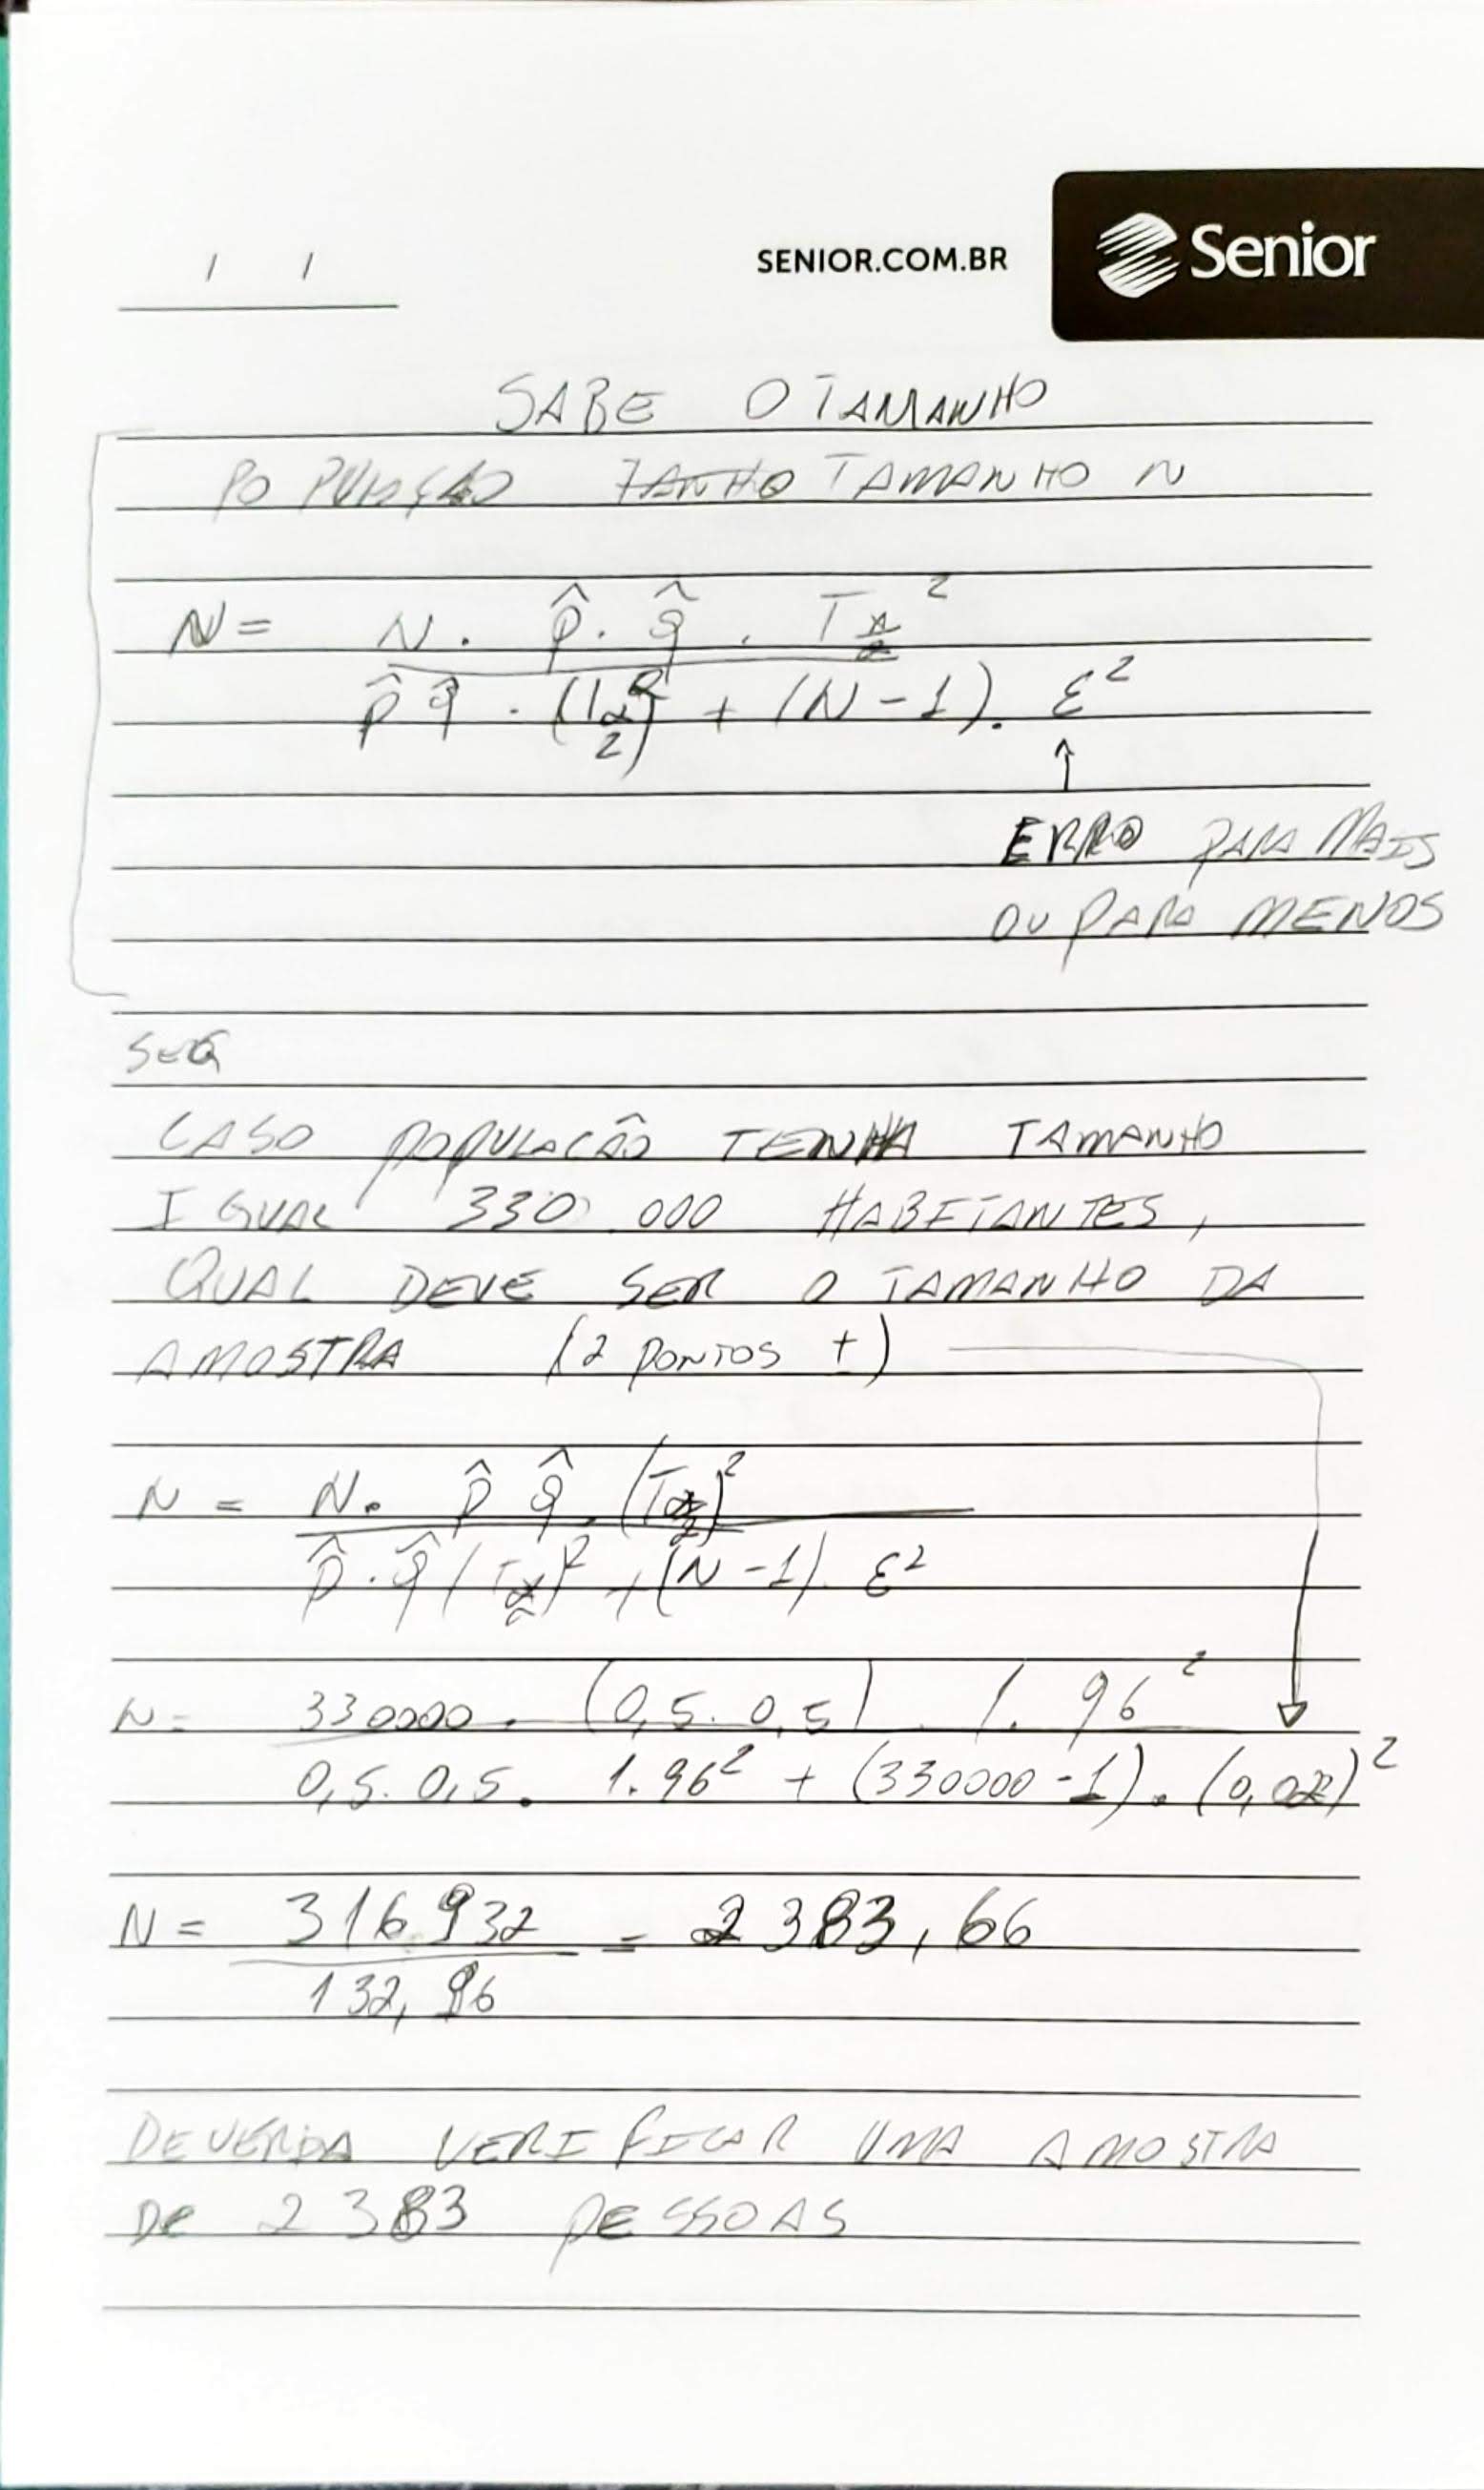 / /
SENIOR.COM.BR
Senior
SABE O TAMANHO
POPULAÇÃO TAMANHO N
N = N . p̂ . q̂ . T α/2 ²
p̂ q̂ . (T α/2)² + (N - 1) . ε²
↑
ERRO PARA MAIS
OU PARA MENOS
CASO POPULAÇÃO TENHA TAMANHO
IGUAL 330.000 HABITANTES,
QUAL DEVE SER O TAMANHO DA
AMOSTRA (2 PONTOS ±)
N = N . p̂ q̂ . (T α/2)²
p̂ . q̂ (T α/2)² + (N - 1) . ε²
N = 330000 . (0,5 . 0,5) . 1.96²
0,5 . 0,5 . 1.96² + (330000 - 1) . (0,02)²
N = 316.932 = 2383,66
132,96
DEVERIA VERIFICAR UMA AMOSTRA
De 2383 PESSOAS